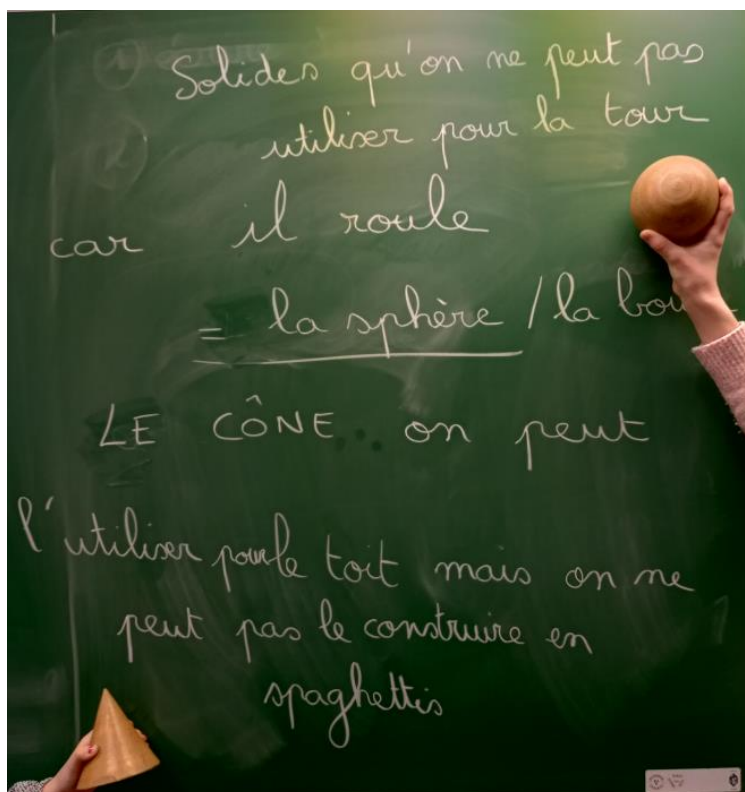 Solides qu'on ne peut pas
utiliser pour la tour
car il roule
= la sphère / la
LE CÔNE on peut
l'utiliser pour le toit mais on ne
peut pas le construire en
spaghettis